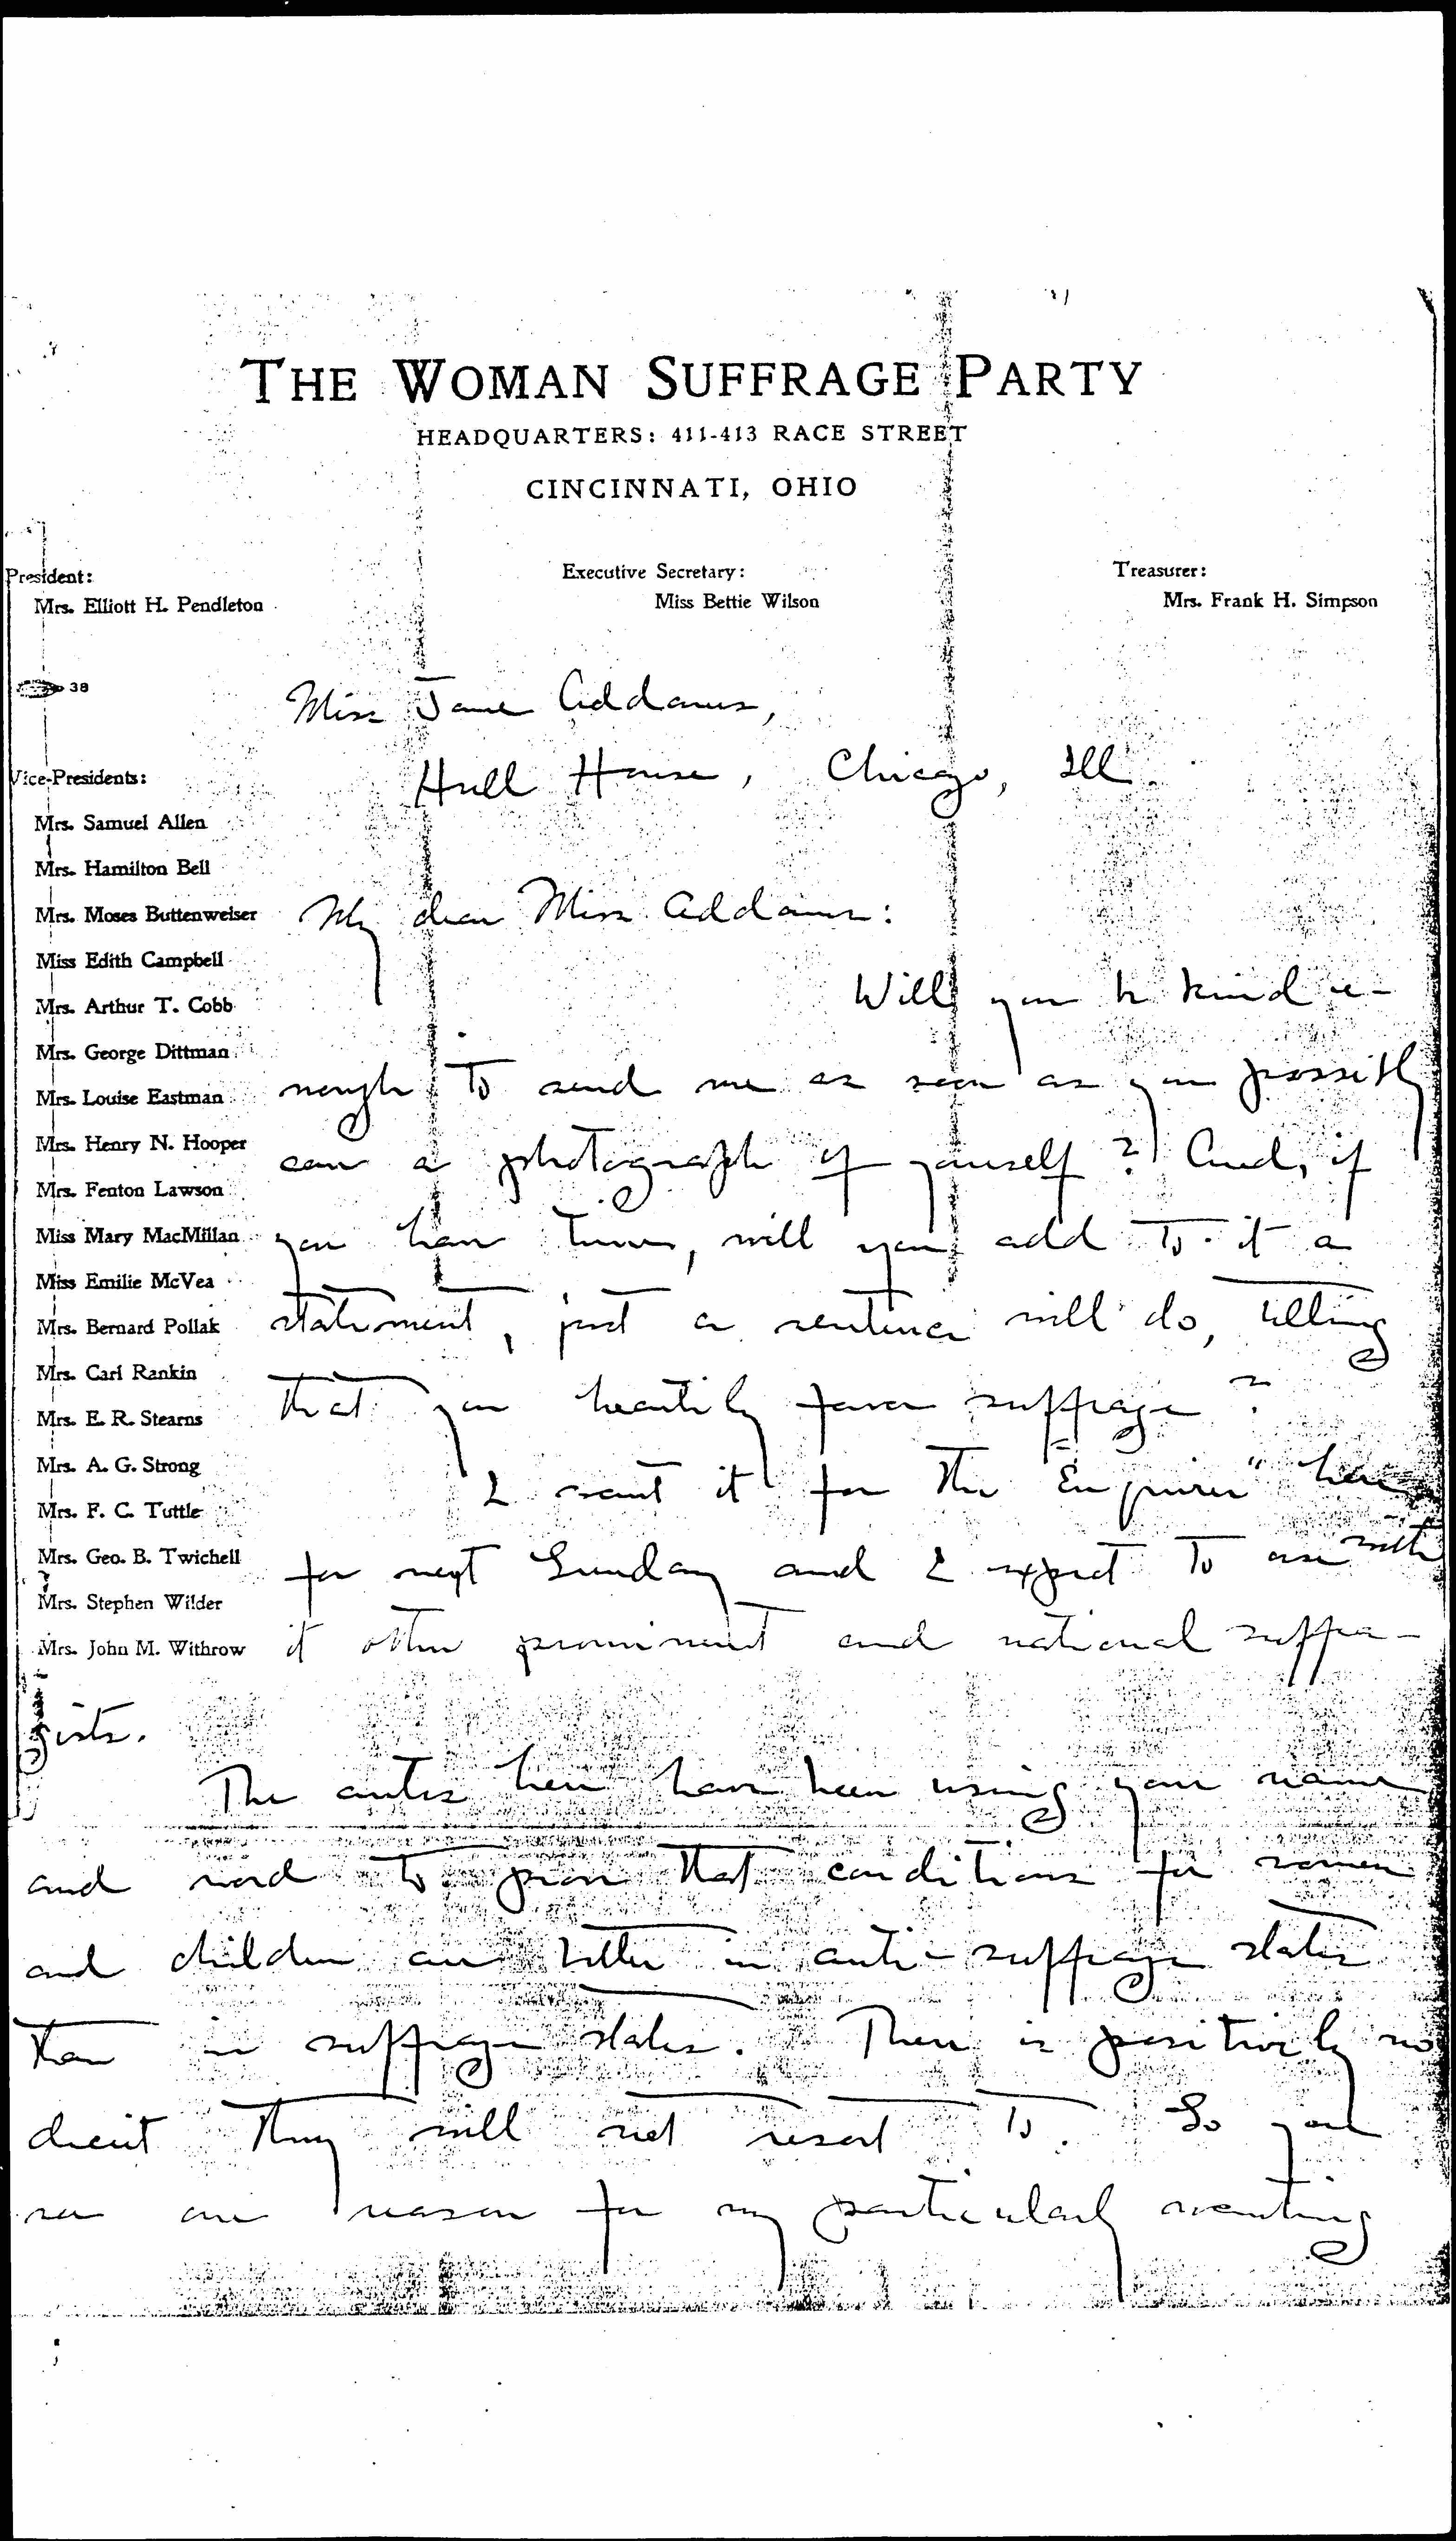 THE WOMAN SUFFRAGE PARTY
HEADQUARTERS: 411-413 RACE STREET
CINCINNATI, OHIO
President:
Mrs. Elliott H. Pendleton
Executive Secretary:
Miss Bettie Wilson
Treasurer:
Mrs. Frank H. Simpson
38
Vice-Presidents:
Mrs. Samuel Allen
Mrs. Hamilton Bell
Mrs. Moses Buttenweiser
Miss Edith Campbell
Mrs. Arthur T. Cobb
Mrs. George Dittman
Mrs. Louise Eastman
Mrs. Henry N. Hooper
Mrs. Fenton Lawson
Miss Mary MacMillan
Miss Emilie McVea
Mrs. Bernard Pollak
Mrs. Carl Rankin
Mrs. E. R. Stearns
Mrs. A. G. Strong
Mrs. F. C. Tuttle
Mrs. Geo. B. Twichell
Mrs. Stephen Wilder
Mrs. John M. Withrow
Miss Jane Addams,
Hull House, Chicago, Ill
My dear Miss Addams:
Will you be kind e-
nough to send me as soon as you possibly
can a photograph of yourself? And, if
you have time, will you add to it a
statement, just a sentence will do, telling
that you heartily favor suffrage?
I want it for the "Enquirer" here
for next Sunday and I expect to use with
it other prominent and national suffra-
gists.
The antis here have been using your name
and word to prove that conditions for women
and children are better in anti-suffrage states
than in suffrage states. There is positively no
deceit they will not resort to. So you
see one reason for my particularly wanting